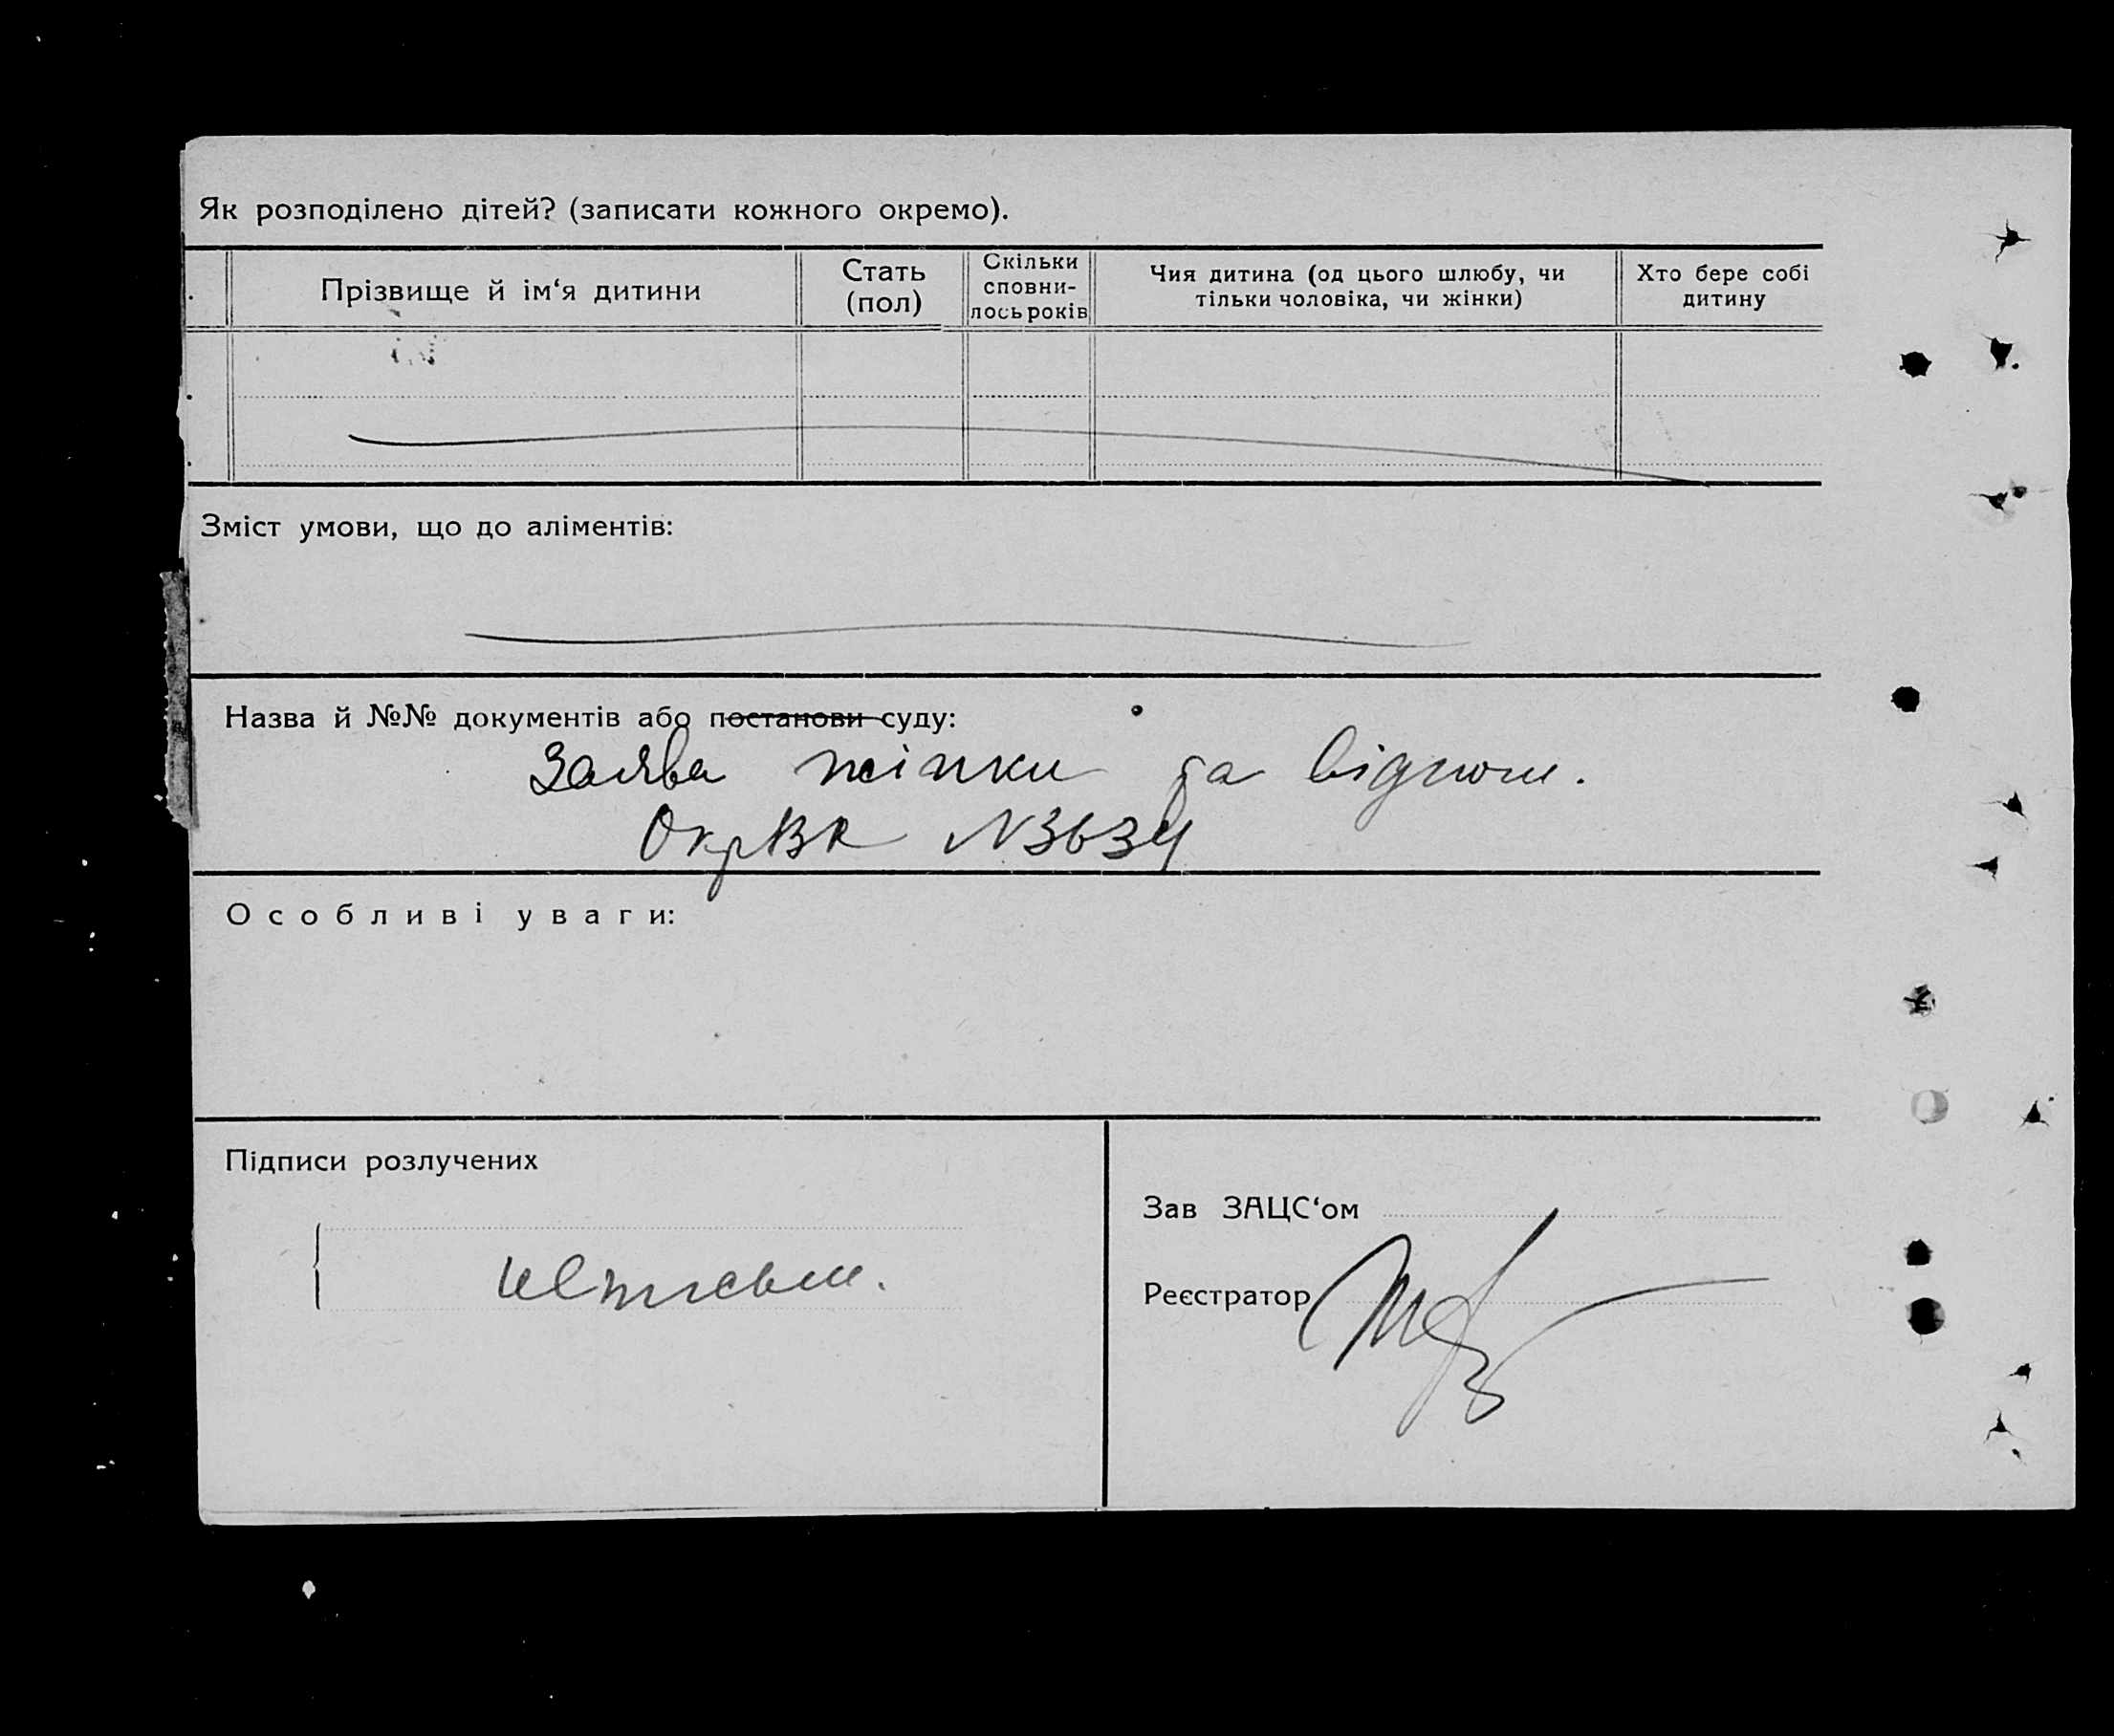 Як розподілено дітей? (записати кожного окремо).
Прізвище й ім‘я дитини
Стать
(пол)
Скільки
сповни-
лось років
Чия дитина (од цього шлюбу, чи
тільки чоловіка, чи жінки)
Хто бере собі
дитину
Зміст умови, що до аліментів:
Назва й №№ документів або постанови суду:
Заява жінки та віднош.
ОкрВК N3634
Особливі уваги:
Підписи розлучених
Зав ЗАЦС‘ом
Реєстратор